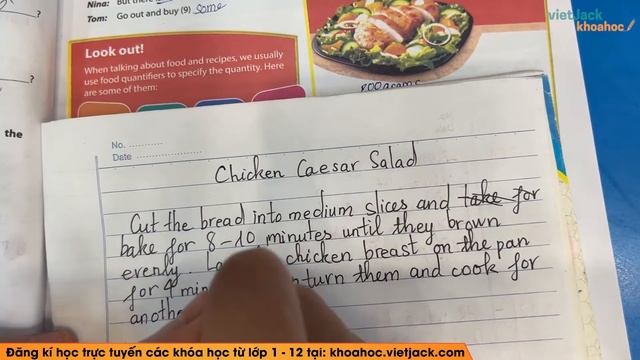 Nina:
Tom: Go out and buy (9) some
?
Look out!
When talking about food and recipes, we usually
use food quantifiers to specify the quantity. Here
are some of them:
?
the
vietJack
khoahoc
No. ...........
Date ......................
Chicken Caesar Salad
Cut the bread into medium slices and take for
bake for 8-10 minutes until they brown
evenly. chicken breast on the pan
for 4 turn them and cook for
Đăng kí học trực tuyến các khóa học từ lớp 1 - 12 tại: khoahoc.vietjack.com